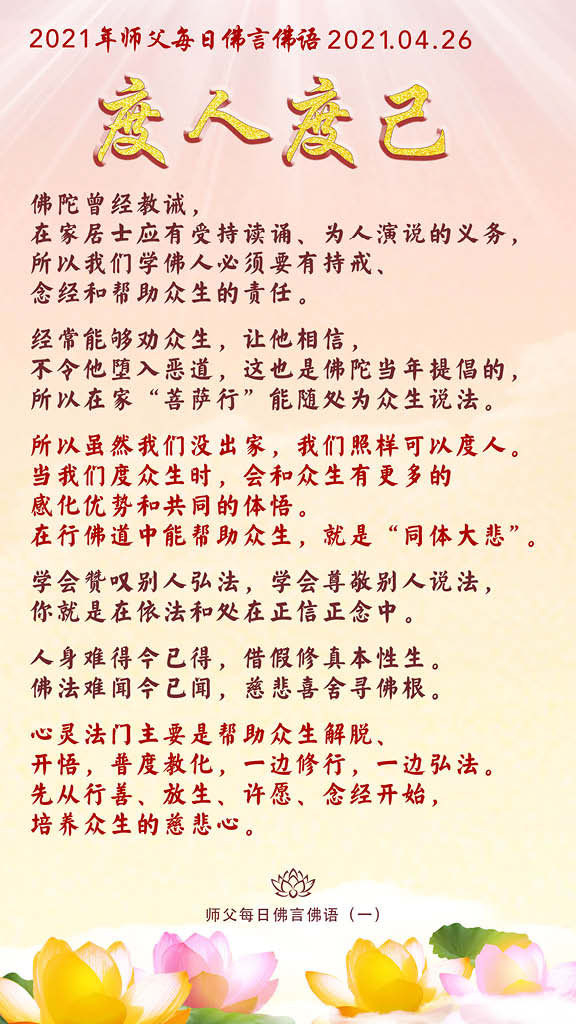 2021年师父每日佛言佛语 2021.04.26
度人度己
佛陀曾经教诫，
在家居士应有受持读诵、为人演说的义务，
所以我们学佛人必须要有持戒、
念经和帮助众生的责任。
经常能够劝众生，让他相信，
不令他堕入恶道，这也是佛陀当年提倡的，
所以在家“菩萨行”能随处为众生说法。
所以虽然我们没出家，我们照样可以度人。
当我们度众生时，会和众生有更多的
感化优势和共同的体悟。
在行佛道中能帮助众生，就是“同体大悲”。
学会赞叹别人弘法，学会尊敬别人说法，
你就是在依法和处在正信正念中。
人身难得今已得，借假修真本性生。
佛法难闻今已闻，慈悲喜舍寻佛根。
心灵法门主要是帮助众生解脱、
开悟，普度教化，一边修行，一边弘法。
先从行善、放生、许愿、念经开始，
培养众生的慈悲心。
师父每日佛言佛语（一）